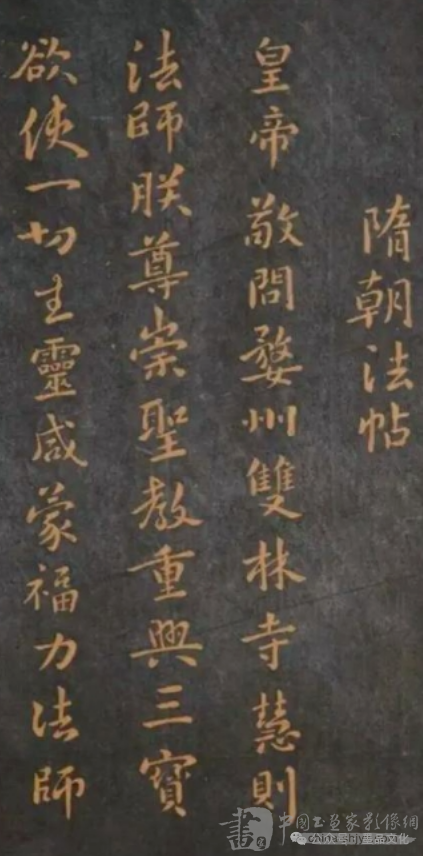 隋朝法帖
皇帝敬問婺州雙林寺慧則
法師朕尊崇聖教重興三寶
欲使一切生靈咸蒙福力法師
書 中國書畫家影像網